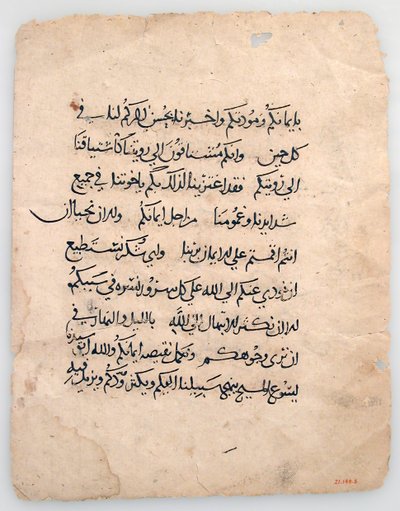 بايمانكم ومودتكم واخبرنا بحسن ذكركم لنا في
كل حين وانكم مشتاقون الي رويتنا كاشتياقنا
الي رويتكم فقد اعتزينا لذلك بكم ياخوتنا في جميع
شدايدنا وغمومنا من اجل ايمانكم والان نحيا ان
انتم اقمتم علي الايمان بربنا واي شكر نستطيع
ان نودي عنكم الي الله علي كل سرور نسره في سببكم
الا ان نكثر الابتهال الي الله بالليل والنهار في
ان نري وجوهكم ونكمل نقيصه ايمانكم والله
يسوع المسيح ينهج سبيلنا اليكم ويكثر ودكم ويزيد فيه
21.146.3